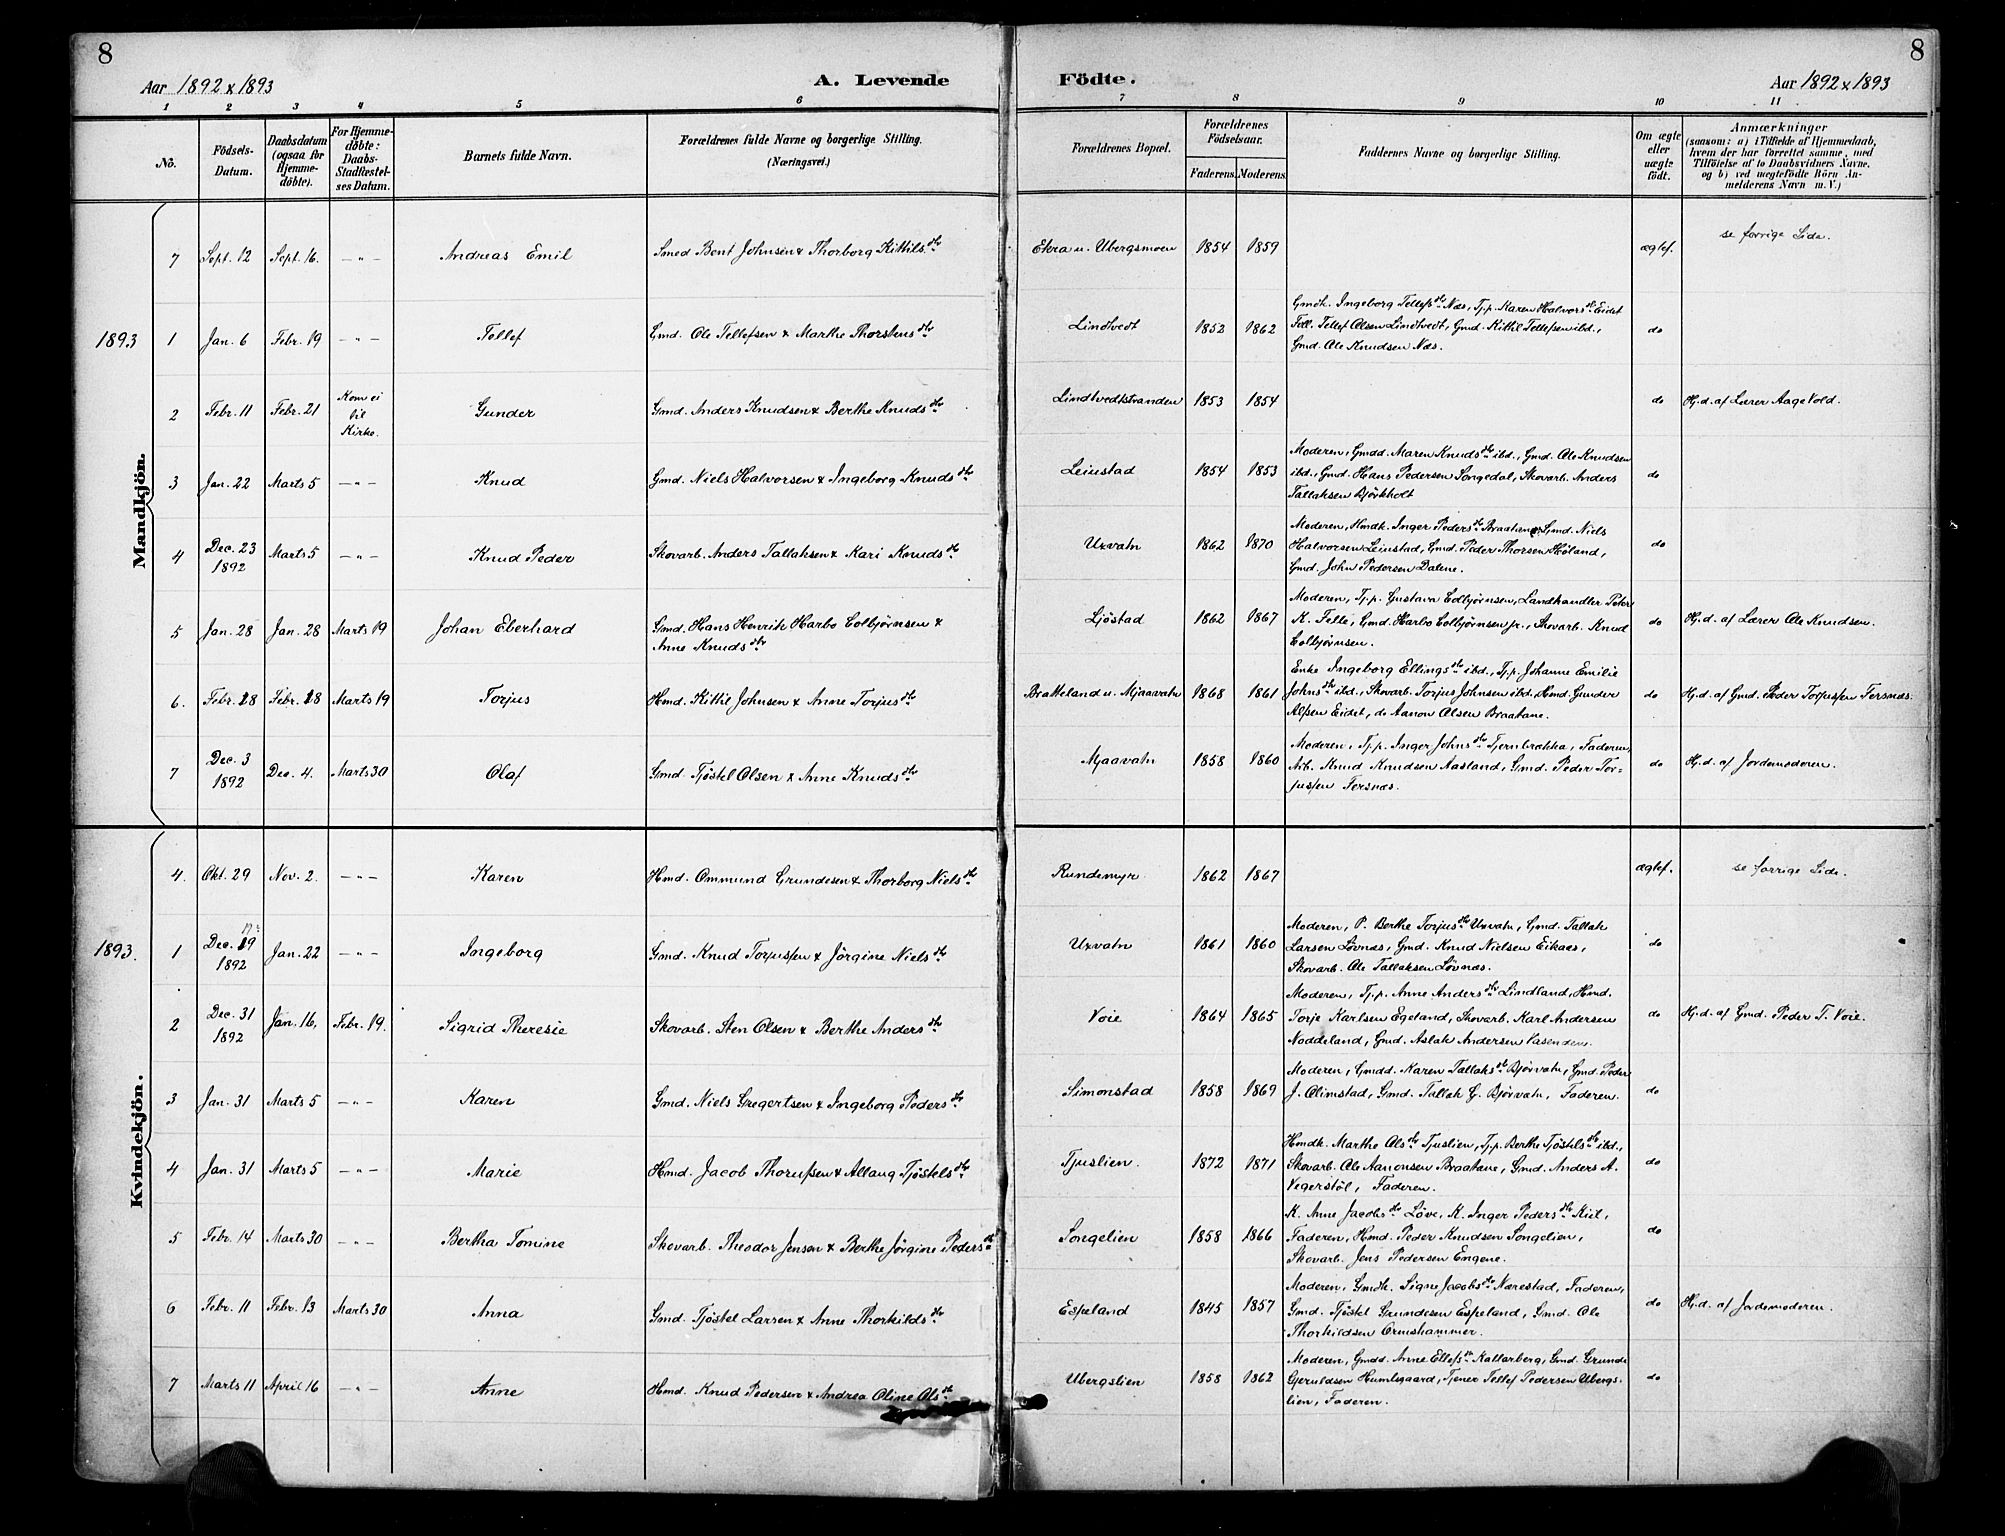 8
8
Aar 1892 & 1893
A. Levende
Födte.
Aar 1892 & 1893
1 2 3 4 5 6 7 8 9 10 11
No.
Födsels-Datum.
Daabsdatum (ogsaa for Hjemme-döbte).
For Hjemme-döbte: Daabs-Stadfæstel-ses Datum.
Barnets fulde Navn.
Forældrenes fulde Navne og borgerlige Stilling. (Næringsvei.)
Forældrenes Bopæl.
Forældrenes Födselsaar.
Faderens. Moderens.
Faddernes Navne og borgerlige Stilling.
Om ægte eller uægte födt.
Anmærkninger
(saasom: a) i Tilfælde af Hjemmedaab, hvem der har forrettet samme, med Tilföielse af to Daabsvidners Navne, og b) ved uægtefödte Börn An-melderens Navn m. V.)
Mandkjön.
7 Sept. 12 Sept. 16. -"- Andreas Emil Smed Bent Johnsen & Thorborg Kittilsdtr Ekra u. Ubergsmoen 1854 1859 ægtef. se forrige Side.
1893
1 Jan. 6 Febr. 19 -"- Tellef Gmd. Ole Tellefsen & Marthe Thorstensdtr Lindtvedt 1852 1862
Gmdk. Ingeborg Tellefsdtr Næs, Tj.p. Karen Halvorsdtr Eidet
Foll. Tellef Olsen Lindtvedt, Gmd. Kittil Tellefsen ibd.,
Gmd. Ole Knudsen Næs.
do
2 Febr. 11 Febr. 21 Kom ei til Kirke. Gunder Gmd. Anders Knudsen & Berthe Knudsdtr Lindtvedtstranden 1853 1854 do Hj.d. af Lærer Aage Vold.
3 Jan. 22 Marts 5 -"- Knud Gmd. Niels Halvorsen & Ingeborg Knudsdtr Leiustad 1854 1853
Moderen, Gmdd. Maren Knudsdtr ibd., Gmd. Ole Knudsen
ibd., Gmd. Hans Pedersen Songedal, Skovarb. Anders
Tallaksen Bjørkholt
do
4 Dec. 23 1892 Marts 5 -"- Knud Peder Skovarb. Anders Tallaksen & Kari Knudsdtr Uxvatn 1862 1870
Moderen, Hmdk. Inger Pedersdtr Braatane, Gmd. Niels
Halvorsen Leiustad, Gmd. Peder Thorsen Høland,
Gmd. John Pedersen Dalene.
do
5 Jan. 28 Jan. 28 Marts 19 Johan Eberhard Gmd. Hans Henrik Harbo Colbjørnsen &
Anne Knudsdtr
Ljöstad 1862 1867
Moderen, Tj.p. Gustava Colbjørnsen, Landhandler Peter
K. Felle, Gmd. Harbo Colbjørnsen jr., Skovarb. Knud
Colbjørnsen.
do Hj.d. af Lærer Ole Knudsen.
6. Febr. 18 Febr. 18 Marts 19 Torjus Hmd. Kittil Johnsen & Anne Torjusdtr Bratteland u. Mjaavatn 1868 1861
Enke Ingeborg Ellingsdtr ibd., Tj.p. Johanne Emilie
Johnsdtr ibd., Skovarb. Torjus Johnsen ibd., Hmd. Gunder
Alfsen Eidet, do Aanon Olsen Braatane.
do Hj.d. af Gmd. Peder Torjussen Fersnæs.
7 Dec. 3 1892 Dec. 4. Marts 30 Olaf Gmd. Tjöstel Olsen & Anne Knudsdtr Mjaavatn 1858 1860
Moderen, Tj.p. Inger Johnsdtr Tjernbrækka, Faderen,
Arb. Knud Knudsen Aasland, Gmd. Peder Tor-
jussen Fersnæs.
do Hj.d. af Jordemoderen.
Kvindekjön.
4. Okt. 29 Nov. 2. -"- Karen Hmd. Ommund Grundesen & Thorborg Nielsdtr Rundemyr 1862 1867 ægtef. se forrige Side.
1893.
1 Dec. 19 1892 Jan. 22 -"- Ingeborg Gmd. Knud Torjussen & Jörgine Nielsdtr Uxvatn 1861 1860
Moderen, P. Berthe Torjusdtr Uxvatn, Gmd. Tallak
Larsen Lövnæs, Gmd. Knud Nielsen Eikaas,
Skovarb. Ole Tallaksen Lövnæs.
do
2 Dec. 31 1892 Jan. 16. Febr. 19. Sigrid Theresie Skovarb. Sten Olsen & Berthe Andersdtr Voie 1864 1865
Moderen, Tj.p. Anne Andersdtr Lindland, Hmd.
Torje Karlsen Egeland, Skovarb. Karl Andersen
Noddeland, Gmd. Aslak Andersen Vasenden.
do Hj.d. af Gmd. Peder T. Voie.
3 Jan. 31 Marts 5 -"- Karen Gmd. Niels Gregertsen & Ingeborg Pedersdtr Simonstad 1858 1869
Moderen, Gmdd. Karen Tallaksdtr Bjørvatn, Gmd. Peder
J. Olimstad, Gmd. Tallak G. Bjørvatn, Faderen.
do
4 Jan. 31 Marts 5 -"- Marie Hmd. Jacob Thorufsen & Allaug Tjöstelsdtr Tjuslien. 1872 1871
Hmdk. Marthe Olsdtr Tjuslien, Tj.p. Berthe Tjöstelsdtr ibd.,
Skovarb. Ole Aanonsen Braatane, Gmd. Anders A.
Vegerstöl, Faderen.
do
5 Febr. 14 Marts 30 -"- Bertha Tomine Skovarb. Theodor Jensen & Berthe Jörgine Pedersdtr Songelien 1858 1866
K. Anne Jacobsdtr Löve, K. Inger Pedersdtr Kiil,
Faderen, Hmd. Peder Knudsen Songelien,
Skovarb. Jens Pedersen Engene.
do
6 Febr. 11 Febr. 13 Marts 30 Anna Gmd. Tjöstel Larsen & Anne Thorkildsdtr Espeland 1845 1857
Moderen, Gmdk. Signe Jacobsdtr Nærestad, Faderen,
Gmd. Tjöstel Grundesen Espeland, Gmd. Ole
Thorkildsen Ormshammer.
do Hj.d. af Jordemoderen.
7 Marts 11 April 16 -"- Anne Hmd. Knud Pedersen & Andrea Oline Olsdtr Ubergslien 1858 1862
Moderen, Gmdd. Anne Ellefsdtr Kallarberg, Gmd. Grunde
Gjeruldsen Humlegaard, Tjener Tellef Pedersen Ubergs-
lien, Faderen.
do